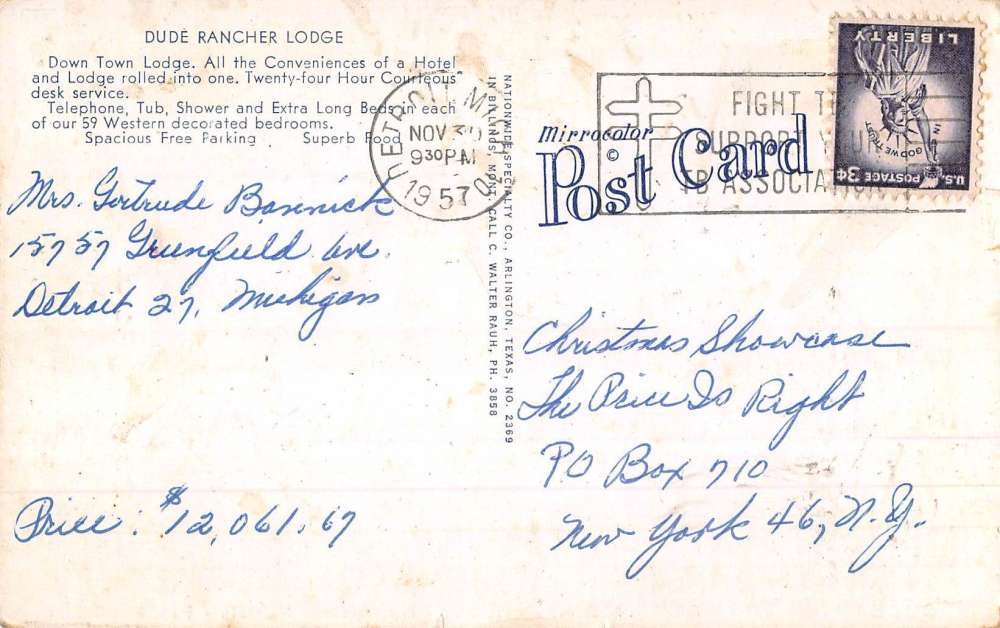 DUDE RANCHER LODGE
Down Town Lodge. All the Conveniences of a Hotel
and Lodge rolled into one. Twenty-four Hour Courteous
desk service.
Telephone, Tub, Shower and Extra Long Beds in each
of our 59 Western decorated bedrooms.
Spacious Free Parking Superb Food
Mrs. Gertrude
15757 Greenfield Ave.
Detroit 27, Michigan
Price: $12,061.67
NATIONWIDE SPECIALTY CO., ARLINGTON, TEXAS, NO. 2369
IN BILLINGS, MONT. CALL C. WALTER RAUH, PH. 3858
DETROIT MICH
NOV 30
930PM
1957
FIGHT TB
SUPPORT YOUR
TB ASSOCIATION
Mirrocolor
©
Post Card
LIBERTY
IN GOD WE TRUST
U.S. POSTAGE 3¢
Christmas Showcase
The Price Is Right
PO Box 710
New York 46, N.Y.